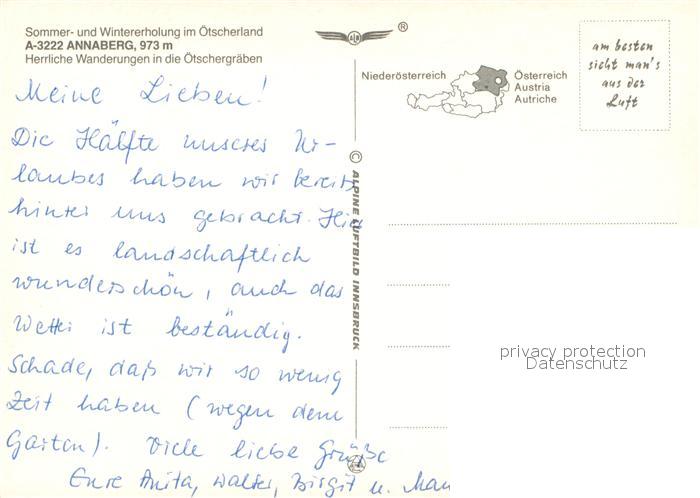 Sommer- und Wintererholung im Ötscherland
A-3222 ANNABERG, 973 m
Herrliche Wanderungen in die Ötschergräben
Meine Lieben!
Die Hälfte unseres Ur-
laubes haben wir bereits
hinter uns gebracht. Hier
ist es landschaftlich
wunderschön, auch das
Wetter ist beständig.
Schade, daß wir so wenig
Zeit haben (wegen dem
Garten). Viele liebe Grüße
Eure Anita, Walter, Birgit u.
®
Niederösterreich
Österreich
Austria
Autriche
am besten
sieht man's
aus der
Luft
© ALPINE LUFTBILD INNSBRUCK
privacy protection
Datenschutz